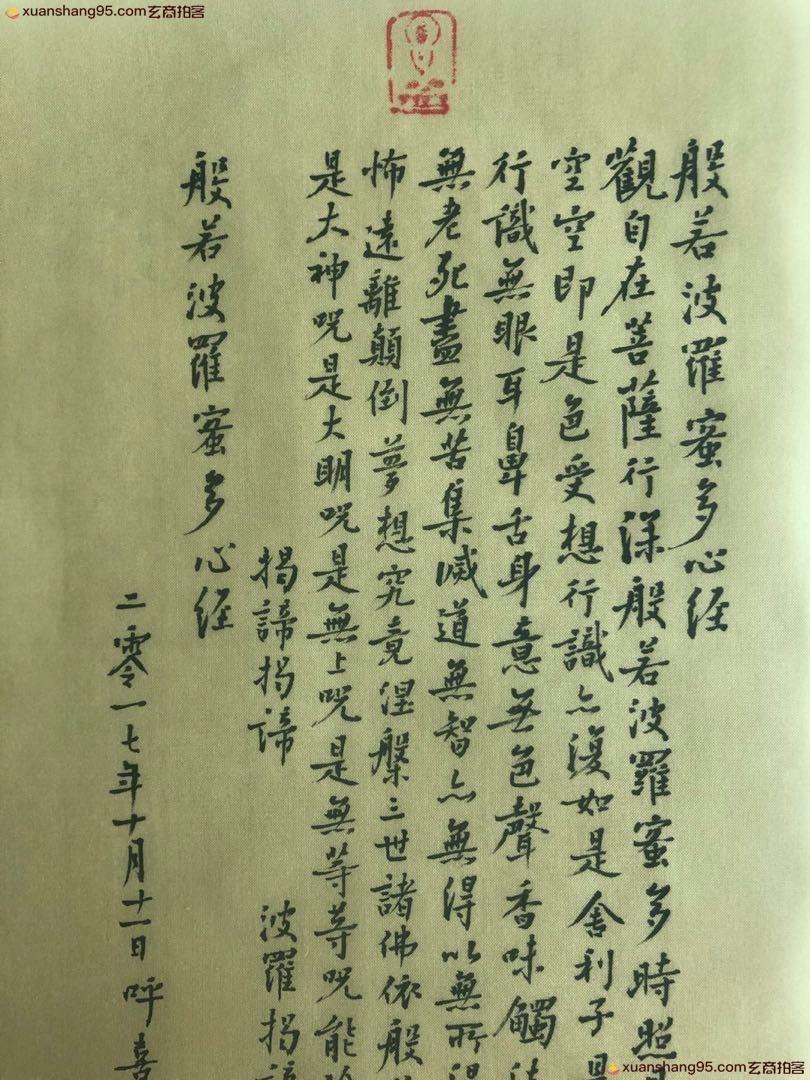 xuanshang95.com玄商拍客
般若波羅蜜多心经
觀自在菩薩行深般若波羅蜜多時照
空空即是色受想行識亦復如是舍利子是
行識無眼耳鼻舌身意無色聲香味觸法
無老死盡無苦集滅道無智亦無得以無所得
怖遠離顛倒夢想究竟涅槃三世諸佛依般
是大神咒是大明咒是無上咒是無等等咒能
揭諦揭諦 波羅揭諦
般若波羅蜜多心经
二零一七年十月十一日呼喜
xuanshang95.com玄商拍客